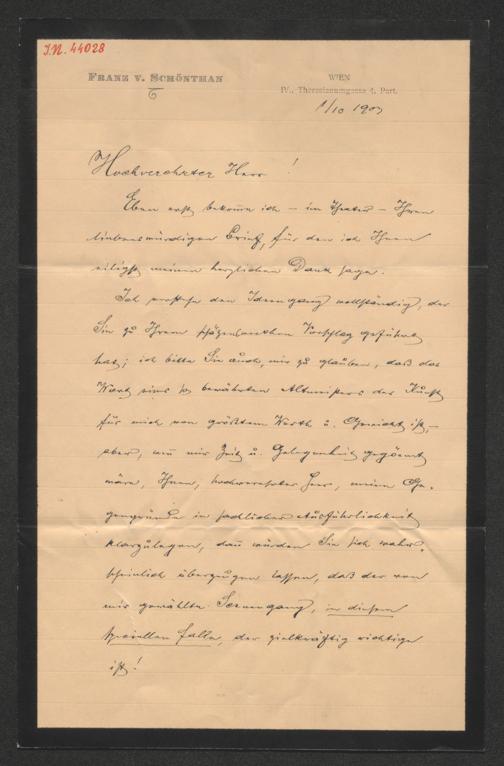 I.N. 44028
FRANZ V. SCHÖNTHAN
WIEN
IV., Theresianumgasse 4, Part.
1/10 1903
Hochverehrter Herr!
Eben erst bekomme ich – im Theater – Ihren
liebenswürdigen Brief, für den ich Ihnen
eiligst meinen herzlichen Dank sage.
Ich verstehe den Ideengang vollständig, der
Sie zu Ihrem schätzenswerthen Vorschlag geführt
hat; ich bitte Sie auch, mir zu glauben, daß das
Wort eines so bewährten Altmeisters der Kunst
für mich von größtem Werth u. Gewicht ist, –
aber, wenn mir Zeit u. Gelegenheit gegönnt
wäre, Ihnen, hochverehrter Herr, meine Ge-
gengründe in sachlicher Ausführlichkeit
klarzulegen, dann würden Sie sich wahr-
scheinlich überzeugen lassen, daß der von
mir gewählte Scenengang, in diesem
speciellen Falle, der zielkräftig richtige
ist!